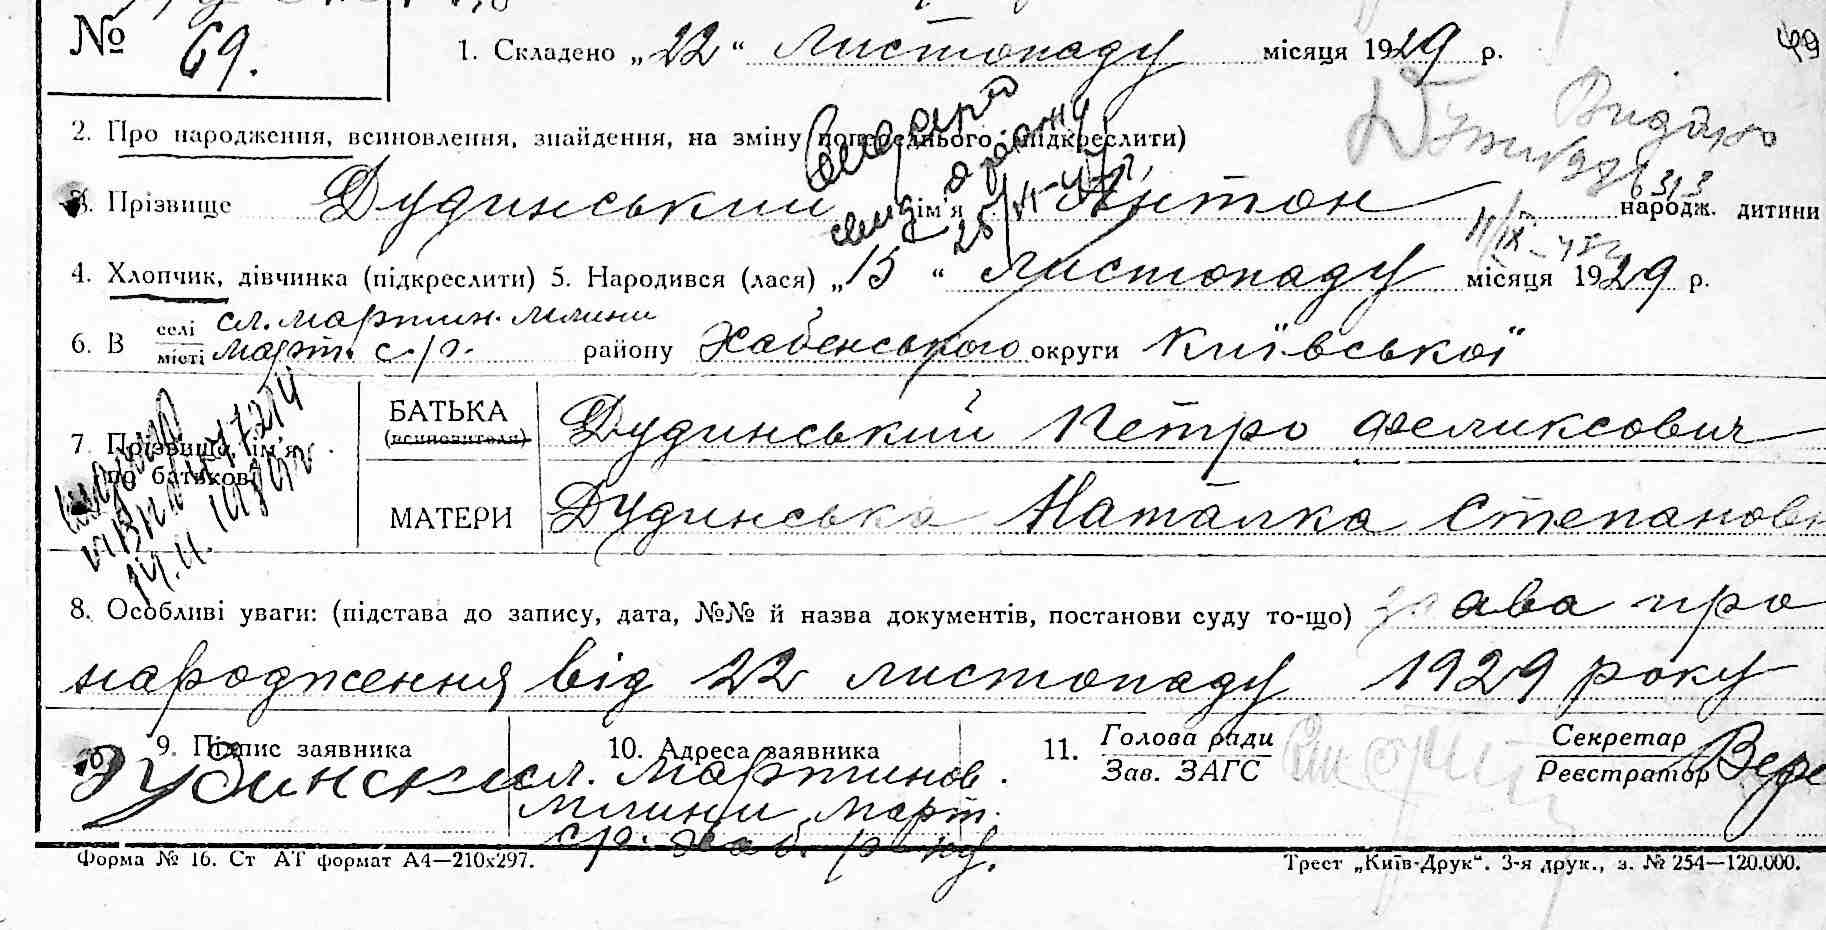 № 69.
1. Складено „22“ листопаду місяця 1929 р.
69
2. Про народження, всиновлення, знайдення, на зміну попереднього (підкреслити)
3. Прізвище Дудинський ім'я Антон народж. дитини
4. Хлопчик, дівчинка (підкреслити) 5. Народився (лася) „15“ листопаду місяця 1929 р.
6. В селі місті сл. Мартин. млини
март. с/р. району Хабенського округи Київської
7. Прізвище, ім'я по батькові
БАТЬКА (всиновителя) Дудинський Петро Феликсович
МАТЕРИ Дудинська Наталка Степановн
8. Особливі уваги: (підстава до запису, дата, №№ й назва документів, постанови суду то-що) заява про
народження від 22 листопаду 1929 року
9. Підпис заявника
10. Адреса заявника
11. Голова ради
Зав. ЗАГС
Секретар
Реєстратор
Дудинский
сл. Мартинов.
млини март.
с/р. Хаб. р-ну.
Форма № 16. Ст АТ формат А4—210х297.
Трест „Київ-Друк“. 3-я друк., з. № 254—120.000.